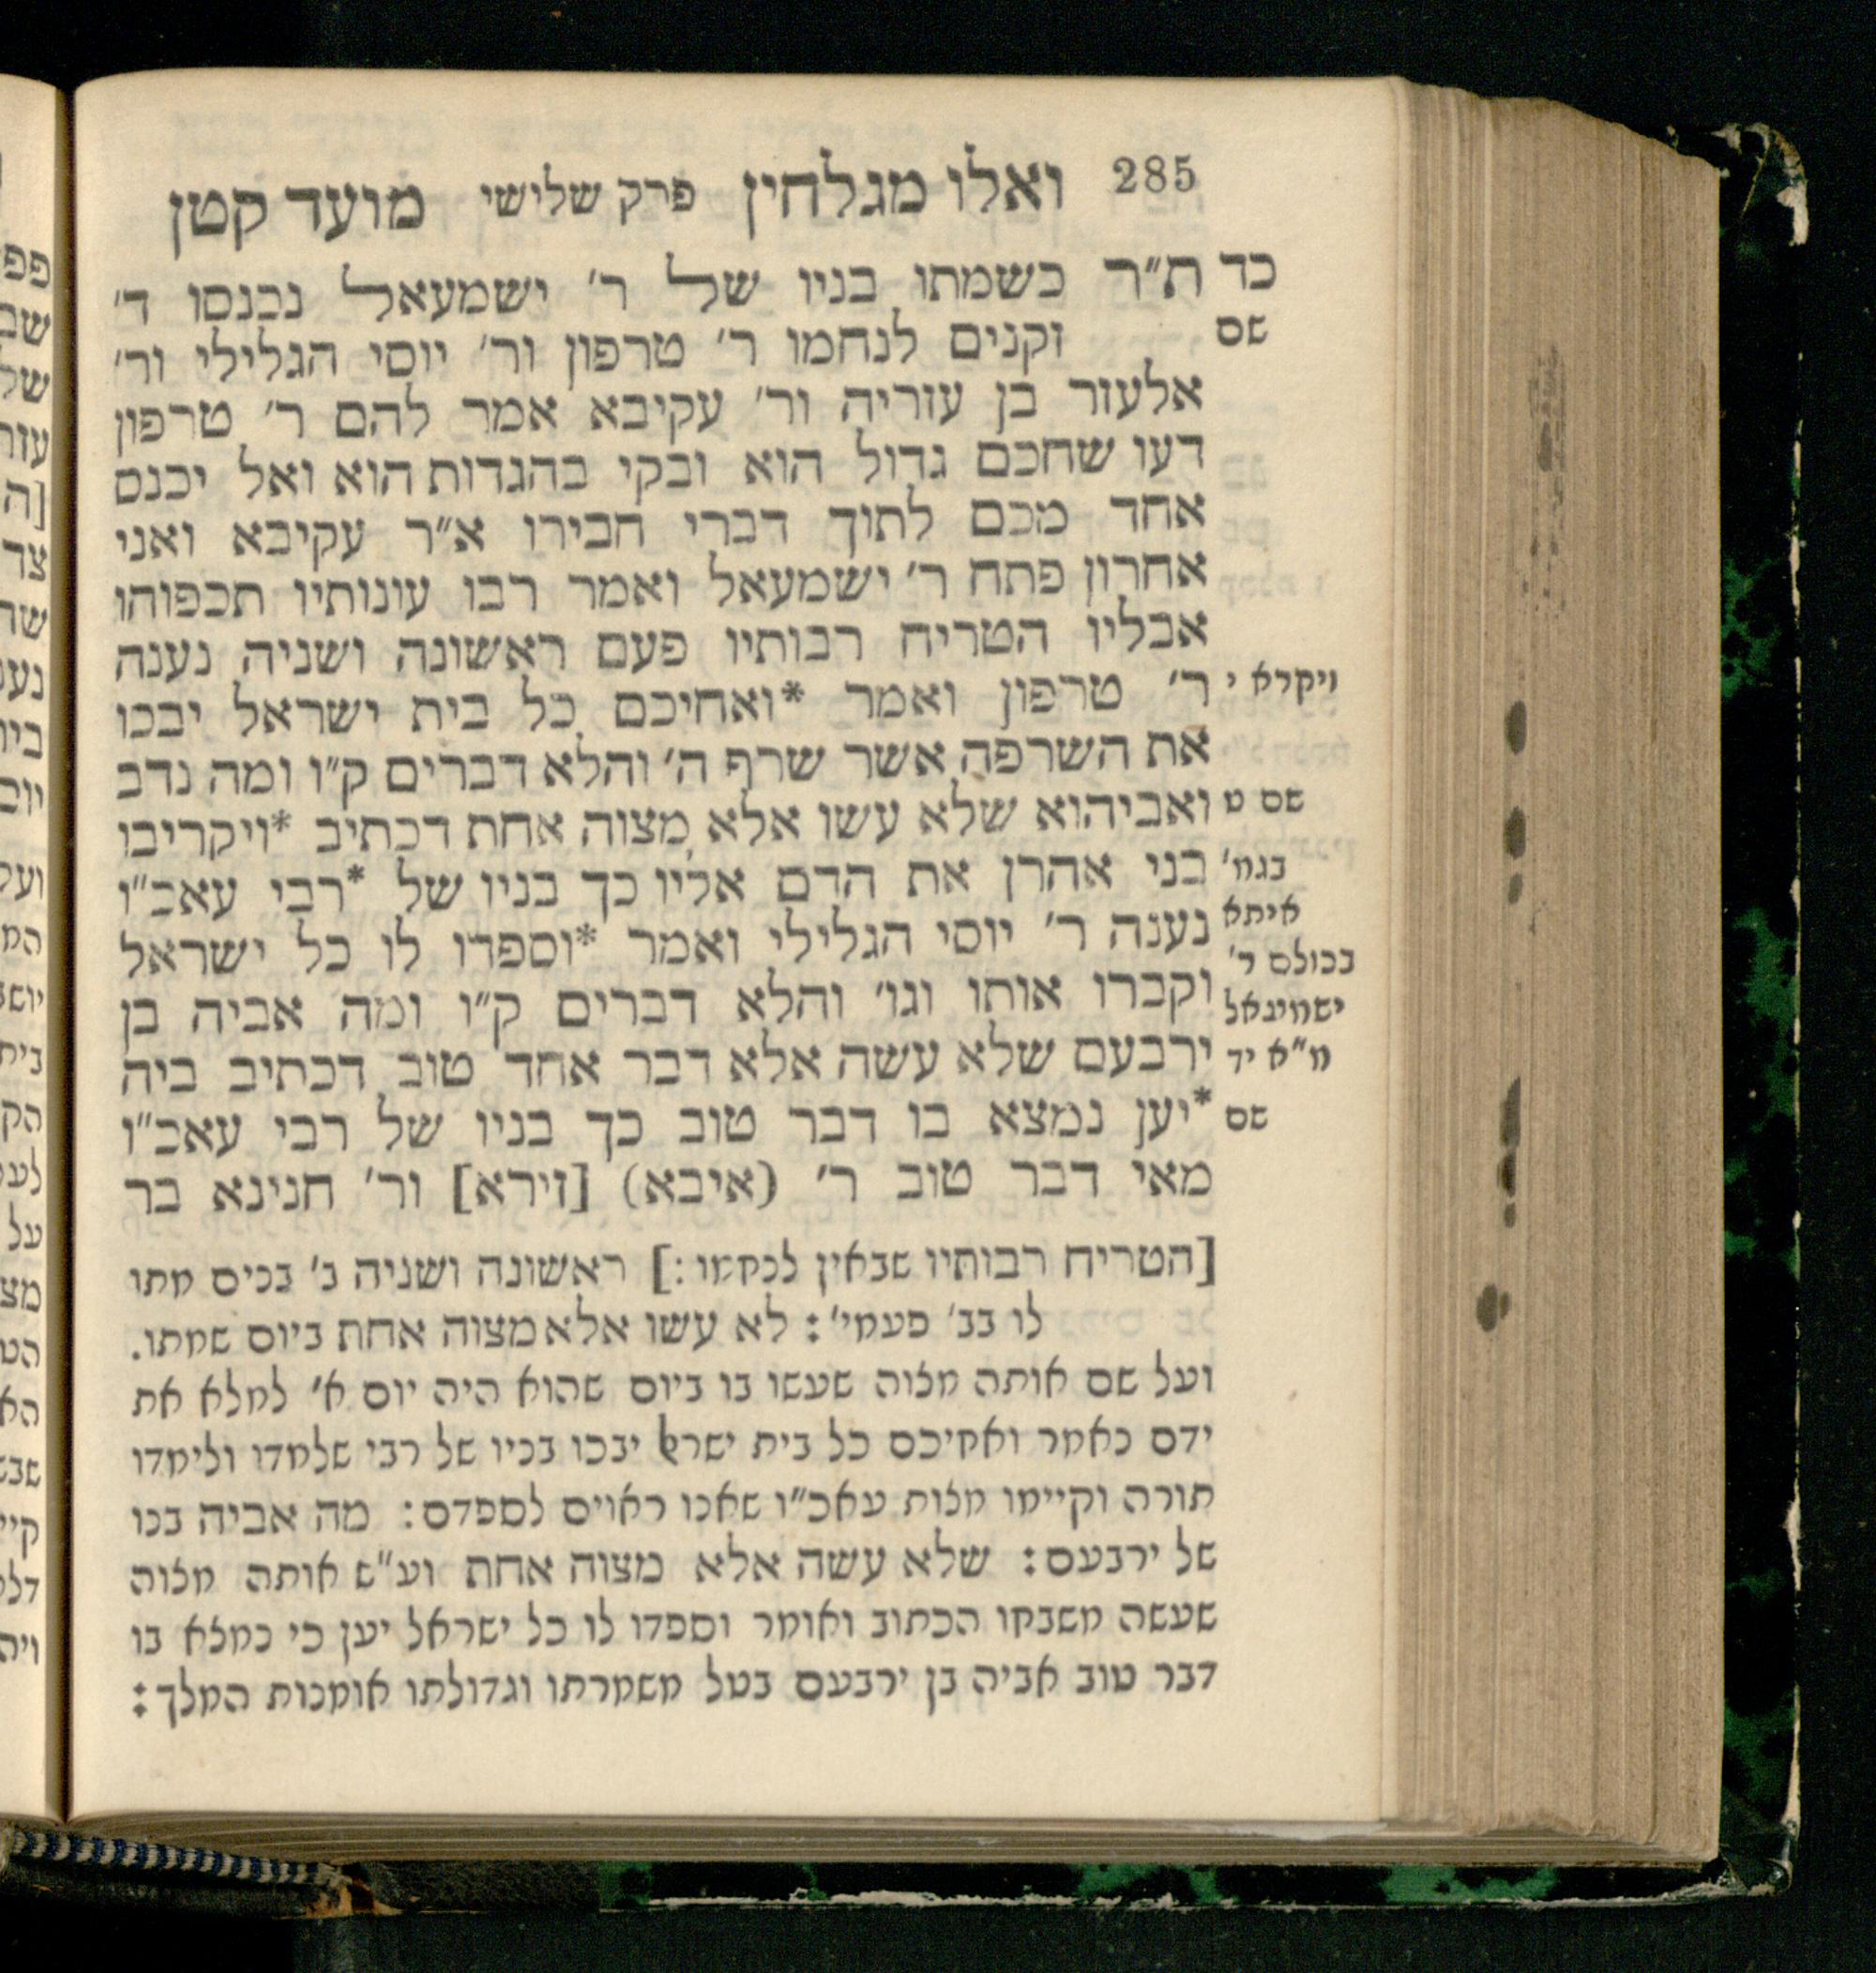 285 ואלו מגלחין פרק שלישי מועד קטן
כד ת״ר כשמתו בניו של ר׳ ישמעאל נכנסו ד׳
שם זקנים לנחמו ר׳ טרפון ור׳ יוסי הגלילי ור׳
אלעזר בן עזריה ור׳ עקיבא אמר להם ר׳ טרפון
דעו שחכם גדול הוא ובקי בהגדות הוא ואל יכנס
אחד מכם לתוך דברי חבירו א״ר עקיבא ואני
אחרון פתח ר׳ ישמעאל ואמר רבו עונותיו תכפוהו
אבליו הטריח רבותיו פעם ראשונה ושניה נענה
ויקרא י ר׳ טרפון ואמר *ואחיכם כל בית ישראל יבכו
את השרפה אשר שרף ה׳ והלא דברים ק״ו ומה נדב
שם ט ואביהוא שלא עשו אלא מצוה אחת דכתיב *ויקריבו
בגמ׳ בני אהרן את הדם אליו כך בניו של *רבי עאכ״ו
איתא נענה ר׳ יוסי הגלילי ואמר *וספדו לו כל ישראל
בכולם ר׳
ישמעאל וקברו אותו וגו׳ והלא דברים ק״ו ומה אביה בן
מ״א יד ירבעם שלא עשה אלא דבר אחד טוב דכתיב ביה
שם *יען נמצא בו דבר טוב כך בניו של רבי עאכ״ו
מאי דבר טוב ר׳ (איבא) [זירא] ור׳ חנינא בר
[הטריח רבותיו שבאין לנחמו:] ראשונה ושניה ב׳ בנים מתו
לו בב׳ פעמי׳: לא עשו אלא מצוה אחת ביום שמתו.
ועל שם אותה מצוה שעשו בו ביום שהוא היה יום א׳ למלא את
ידם נאמר ואחיכם כל בית ישראל יבכו בניו של רבי שלמדו ולימדו
תורה וקיימו מצות עאכ״ו שאנו ראוים לספדם: מה אביה בנו
של ירבעם: שלא עשה אלא מצוה אחת וע״ש אותה מצוה
שעשה משבחו הכתוב ואומר וספדו לו כל ישראל יען כי נמצא בו
דבר טוב אביה בן ירבעם בטל משמרתו וגדולתו אומנות המלך: